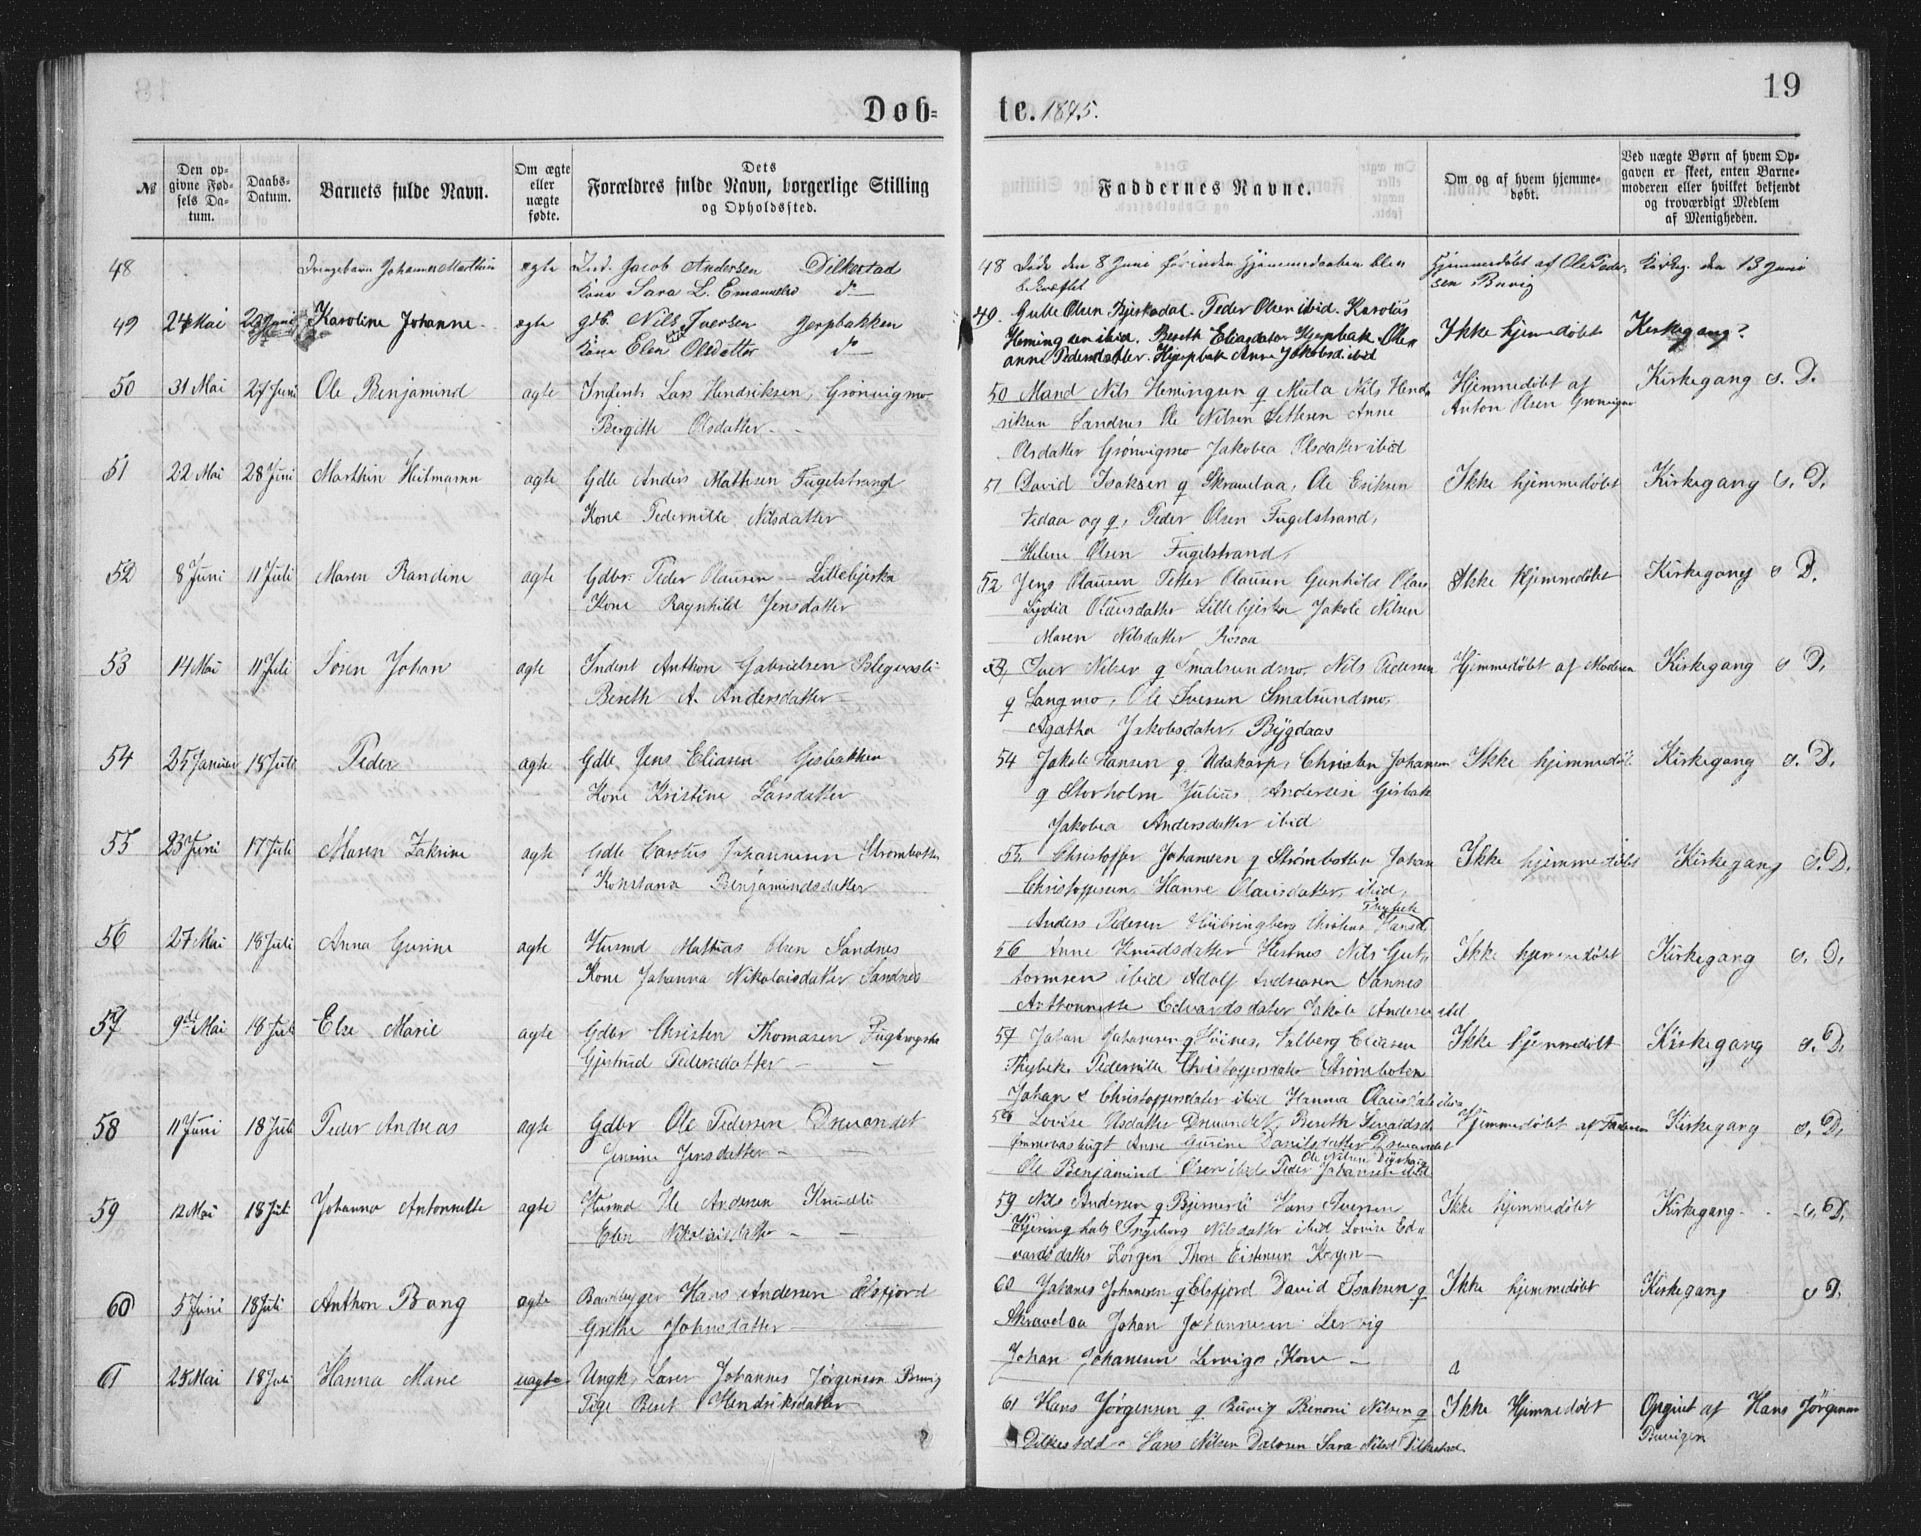 19
Døb-
te. 1875.
№
Den op-
givne Fød-
sels Da-
tum.
Daabs-
Datum.
Barnets fulde Navn.
Om ægte
eller
uægte
fødte.
Dets
Forældres fulde Navn, borgerlige Stilling
og Opholdssted.
Faddernes Navne.
Om og af hvem hjemme-
døbt.
Ved uægte Børn af hvem Op-
gaven er skeet, enten Barne-
moderen eller hvilket bekjendt
og troværdigt Medlem
af Menigheden.
48 Drengebarn Johannes Marthin ægte Ind. Jacob Andersen Dilkestad
Kone Sara L. Emanuelsd d—
48 Døde den 8 Juni førinden hjemmedaaben blev
bekræftet
Hjemmedøbt af Ole Peder-
sen Buvig
den 13 Juni
49 24 Mai Karoline Johanne ægte gb. Nils Iversen Jerpbakken
Kone Elen Olsdatter d—
49. Gulle Olsen Bjerkadal. Peder Olsen ibid. Karolus
Hemingsen ibid. Bereth Eliasdatter Hjerpbak Ole-
anne Pedersdatter. Hjerpbak Anne Jakobsd ibid
Ikke hjemmedøbt
Kirkegang?
50 31 Mai 27 Juni Ole Benjamind ægte Inderst Lars Hendriksen, Grønvigmo
Bergitte Olsdatter
50 Mand Nils Hemingsen g Nils Hend-
riksen Sandnes Ole Nilsen Anne
Olsdatter Grønvigmo Jakobea Olsdatter ibid
Hjemmedøbt af
Anton Olsen Grønvigmo
Kirkegang s. D.
51 22 Mai 28 Juni Marthin Heitmann ægte Gdb Anders Mathisen Fugelstrand
Kone Pedernille Nilsdatter
51 David Isaksen g Skravelaa, Ole Eriksen
Vedaa og g, Peder Olsen Fugelstrand,
Helene Olsen Fugelstrand,
Ikke hjemmedøbt
Kirkegang s. D.
52 8 Juni 11 Juli Maren Randine ægte Gdbr. Peder Olausen — Lillebjerka
Kone Ragnhild Jensdatter
52 Jens Olausen Petter Olausen Gunhild Olau
Lydia Olausdatter Lillebjerka Jakob Nilsen
Maren Nilsdatter Røsaa
Ikke hjemmedøbt
Kirkegang s D.
53 14 Mai 11 Juli Søren Johan ægte Inderst Anthon Gabrielsen
Bereth A. Andersdatter —
53 Iver Nilsen g Smalsundmo. Nils Pedersen
g Langmo, Ole Iversen Smalsundmo,
Agatha Jakobsdatter, Bygdaas
Hjemmedøbt af Moderen
Kirkegang s D.
54 25 Januar 18 Juli Peder ægte Gdb. Jens Eliasen Gisbakken
Kone Kristine Larsdatter
54 Jakob Hansen g. Udakarp, Christen Johansen
g Storholm Julius Andersen Gisbak
Jakobea Andersdatter ibid
Ikke hjemmedøbt
Kirkegang s. D.
55 23 Juni 17 Juli Maren Zakrine ægte Gdb Carolus Johannesen Strømbotten
Konstana Benjamindsdatter
55 Christoffer Johansen g Strømbotten Johan
Christoffersen, Hanne Olausdatter, ibid,
Anders Pedersen Hansd
Thybæk
Ikke hjemmedøbt
Kirkegang s. D.
56 27 Mai 18 Juli Anna Gurine ægte Husmd Mathias Olsen Sandnes
Kone Johanna Nikolaisdatter Sandnes
56 Anne Knudsdatter Hestnes Nils Gut-
tormsen ibid Adolf Andreasen Sannes
Anthonnette Edvardsdatter Jakob Andersen ibd
Ikke hjemmedøbt
Kirkegang s. D.
57 9de Mai 18 Juli Else Marie ægte Gdbr Christen Thomasen
Gjertrud Pedersdatter —
57 Johan Johansen g Høines, Salberg Eliasen
Thybek. Pedernille Christoffersdater Strømboten
Johan & Christoffersdater ibid Hanna Olausdatr ibid
Ikke hjemmedøbt
Kirkegang s. D.
58 11 Juni 18 Juli Peder Andreas ægte Gdbr Ole Pedersen Drevandet
Gurine Jensdatter —
58 Lovise Olsdatter Drevandet, Bereth
Anne Gurine Danilsdatter Drevandet
Ole Nilsen
Ole Benjamind Olsen ibid Peder Johansen ibid
Hjemmedøbt af Faderen
Kirkegang s. D.
59 12 Mai 18 Juli Johanna Antonnette ægte Husmd Ole Andersen Knudli
Elen Nikolaisdatter —
59 Nils Andersen g Bjurneli Hans Iversen
Ingeborg Nilsdatter ibid Lovise Ed-
vardsdatter Korgen Thore Eistensen Korgen —
Ikke hjemmedøbt
Kirkegang s. D.
60 5 Juni 18 Juli Anthon Bang ægte Baadbygger Hans Andersen Elsfjord
Grethe Johnsdatter —
60 Johanes Johansen g Elsfjord David Isaksen g
Skravelaa Johan Johannesen Lervig
Johan Johansen Lervigs Kone —
Ikke hjemmedøbt
Kirkegang s D.
61 25 Mai 18 Juli Hanna Marie uægte Ungk. Johannes Jørgensen Buvig
Pige Beret Hendriksdatter
61 Hans Jørgensen g. Buvig Benoni Nilsen g
Dilkestad — Hans Nilsen Dalosen Sara Nilsd Dilkestad
Ikke Hjemmedøbt
Opgivt af Hans Jørgensen
Buvigen